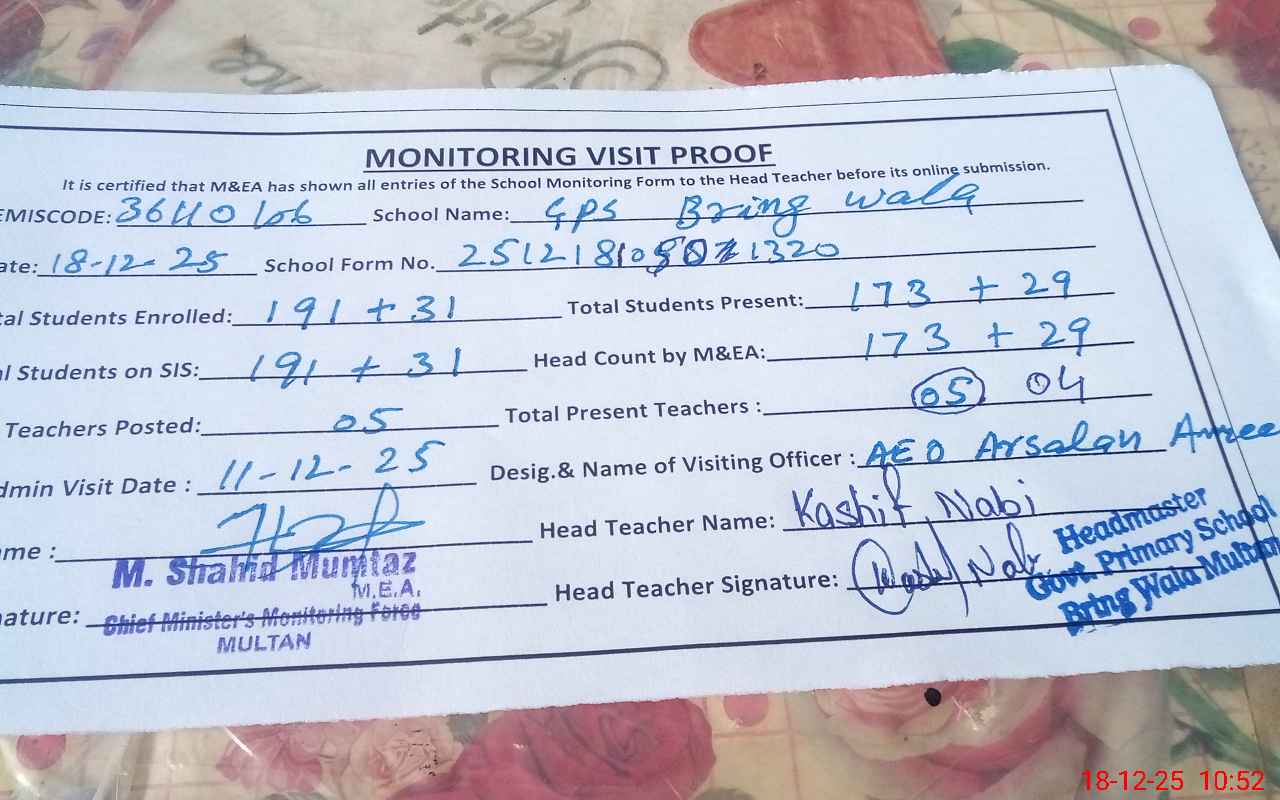 MONITORING VISIT PROOF
It is certified that M&EA has shown all entries of the School Monitoring Form to the Head Teacher before its online submission.
EMISCODE: 36110106 School Name: GPS Bring wala
ate: 18-12-25 School Form No. 1320
tal Students Enrolled: 191 + 31 Total Students Present: 173 + 29
l Students on SIS: 191 + 31 Head Count by M&EA: 173 + 29
Teachers Posted: 05 Total Present Teachers : 05 04
dmin Visit Date : 11-12-25 Desig.& Name of Visiting Officer : AEO Arsalan
me : Head Teacher Name: Kashif Nabi
M. Shahid Mumtaz
M.E.A.
ature: Chief Minister's Monitoring Force
MULTAN
Head Teacher Signature:
Headmaster
Govt. Primary School
Bring Wala Multan
18-12-25 10:52